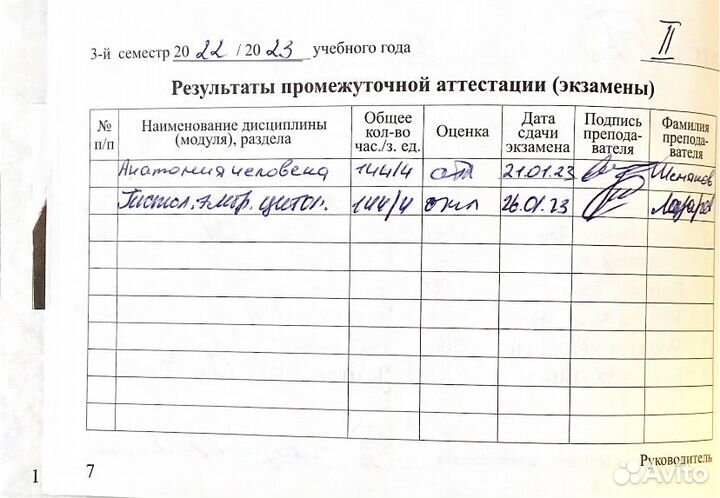 II
3-й семестр 2022 / 2023 учебного года
Результаты промежуточной аттестации (экзамены)
№ п/п
Наименование дисциплины (модуля), раздела
Общее кол-во час./з. ед.
Оценка
Дата сдачи экзамена
Подпись препода-вателя
Фамилия препода-вателя
Анатомия человека 144/4 отл 21.01.23
Гистол. Эмбр. Цитол. 144/4 отл 26.01.23 Лазарев
Руководитель
1 7
Avito